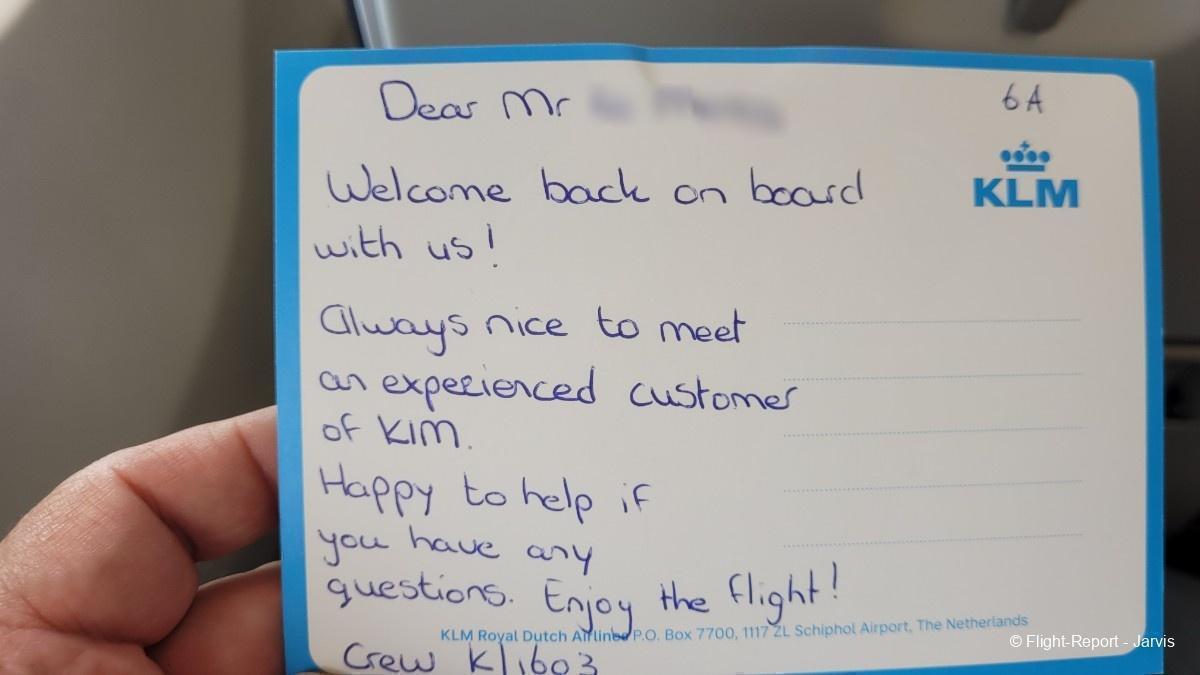 Dear Mr
6A
KLM
Welcome back on board
with us!
Always nice to meet
an experienced customer
of KLM.
Happy to help if
you have any
questions. Enjoy the flight!
KLM Royal Dutch Airlines P.O. Box 7700, 1117 ZL Schiphol Airport, The Netherlands
Crew Kl1603
© Flight-Report - Jarvis